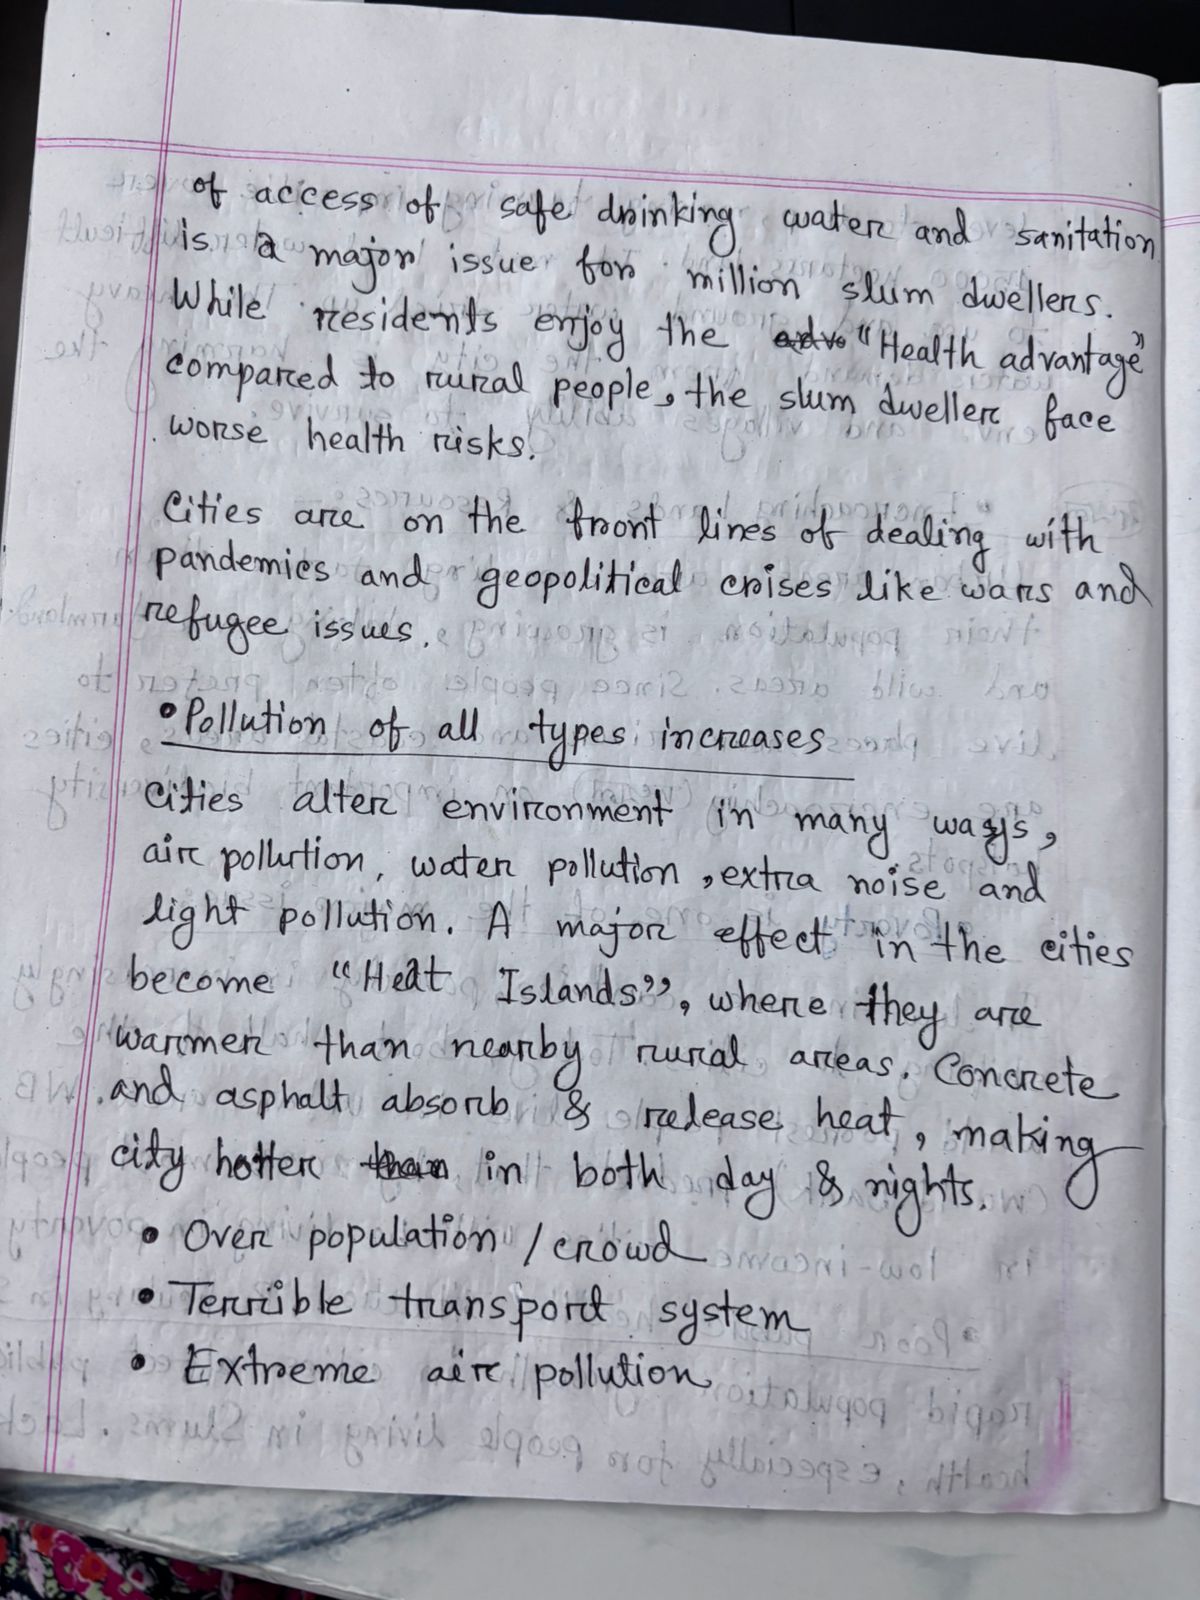 of access of safe drinking water and sanitation
is a major issue for million slum dwellers.
While residents enjoy the "Health advantage"
compared to rural people, the slum dweller face
worse health risks.
Cities are on the front lines of dealing with
pandemics and geopolitical crises like wars and
refugee issues.
• Pollution of all types increases
Cities alter environment in many ways,
air pollution, water pollution, extra noise and
light pollution. A major effect in the cities
become "Heat Islands", where they are
warmer than nearby rural areas. Concrete
and asphalt absorb & release heat, making
city hotter in both day & nights.
• Over population / crowd
• Terrible transport system
• Extreme air pollution